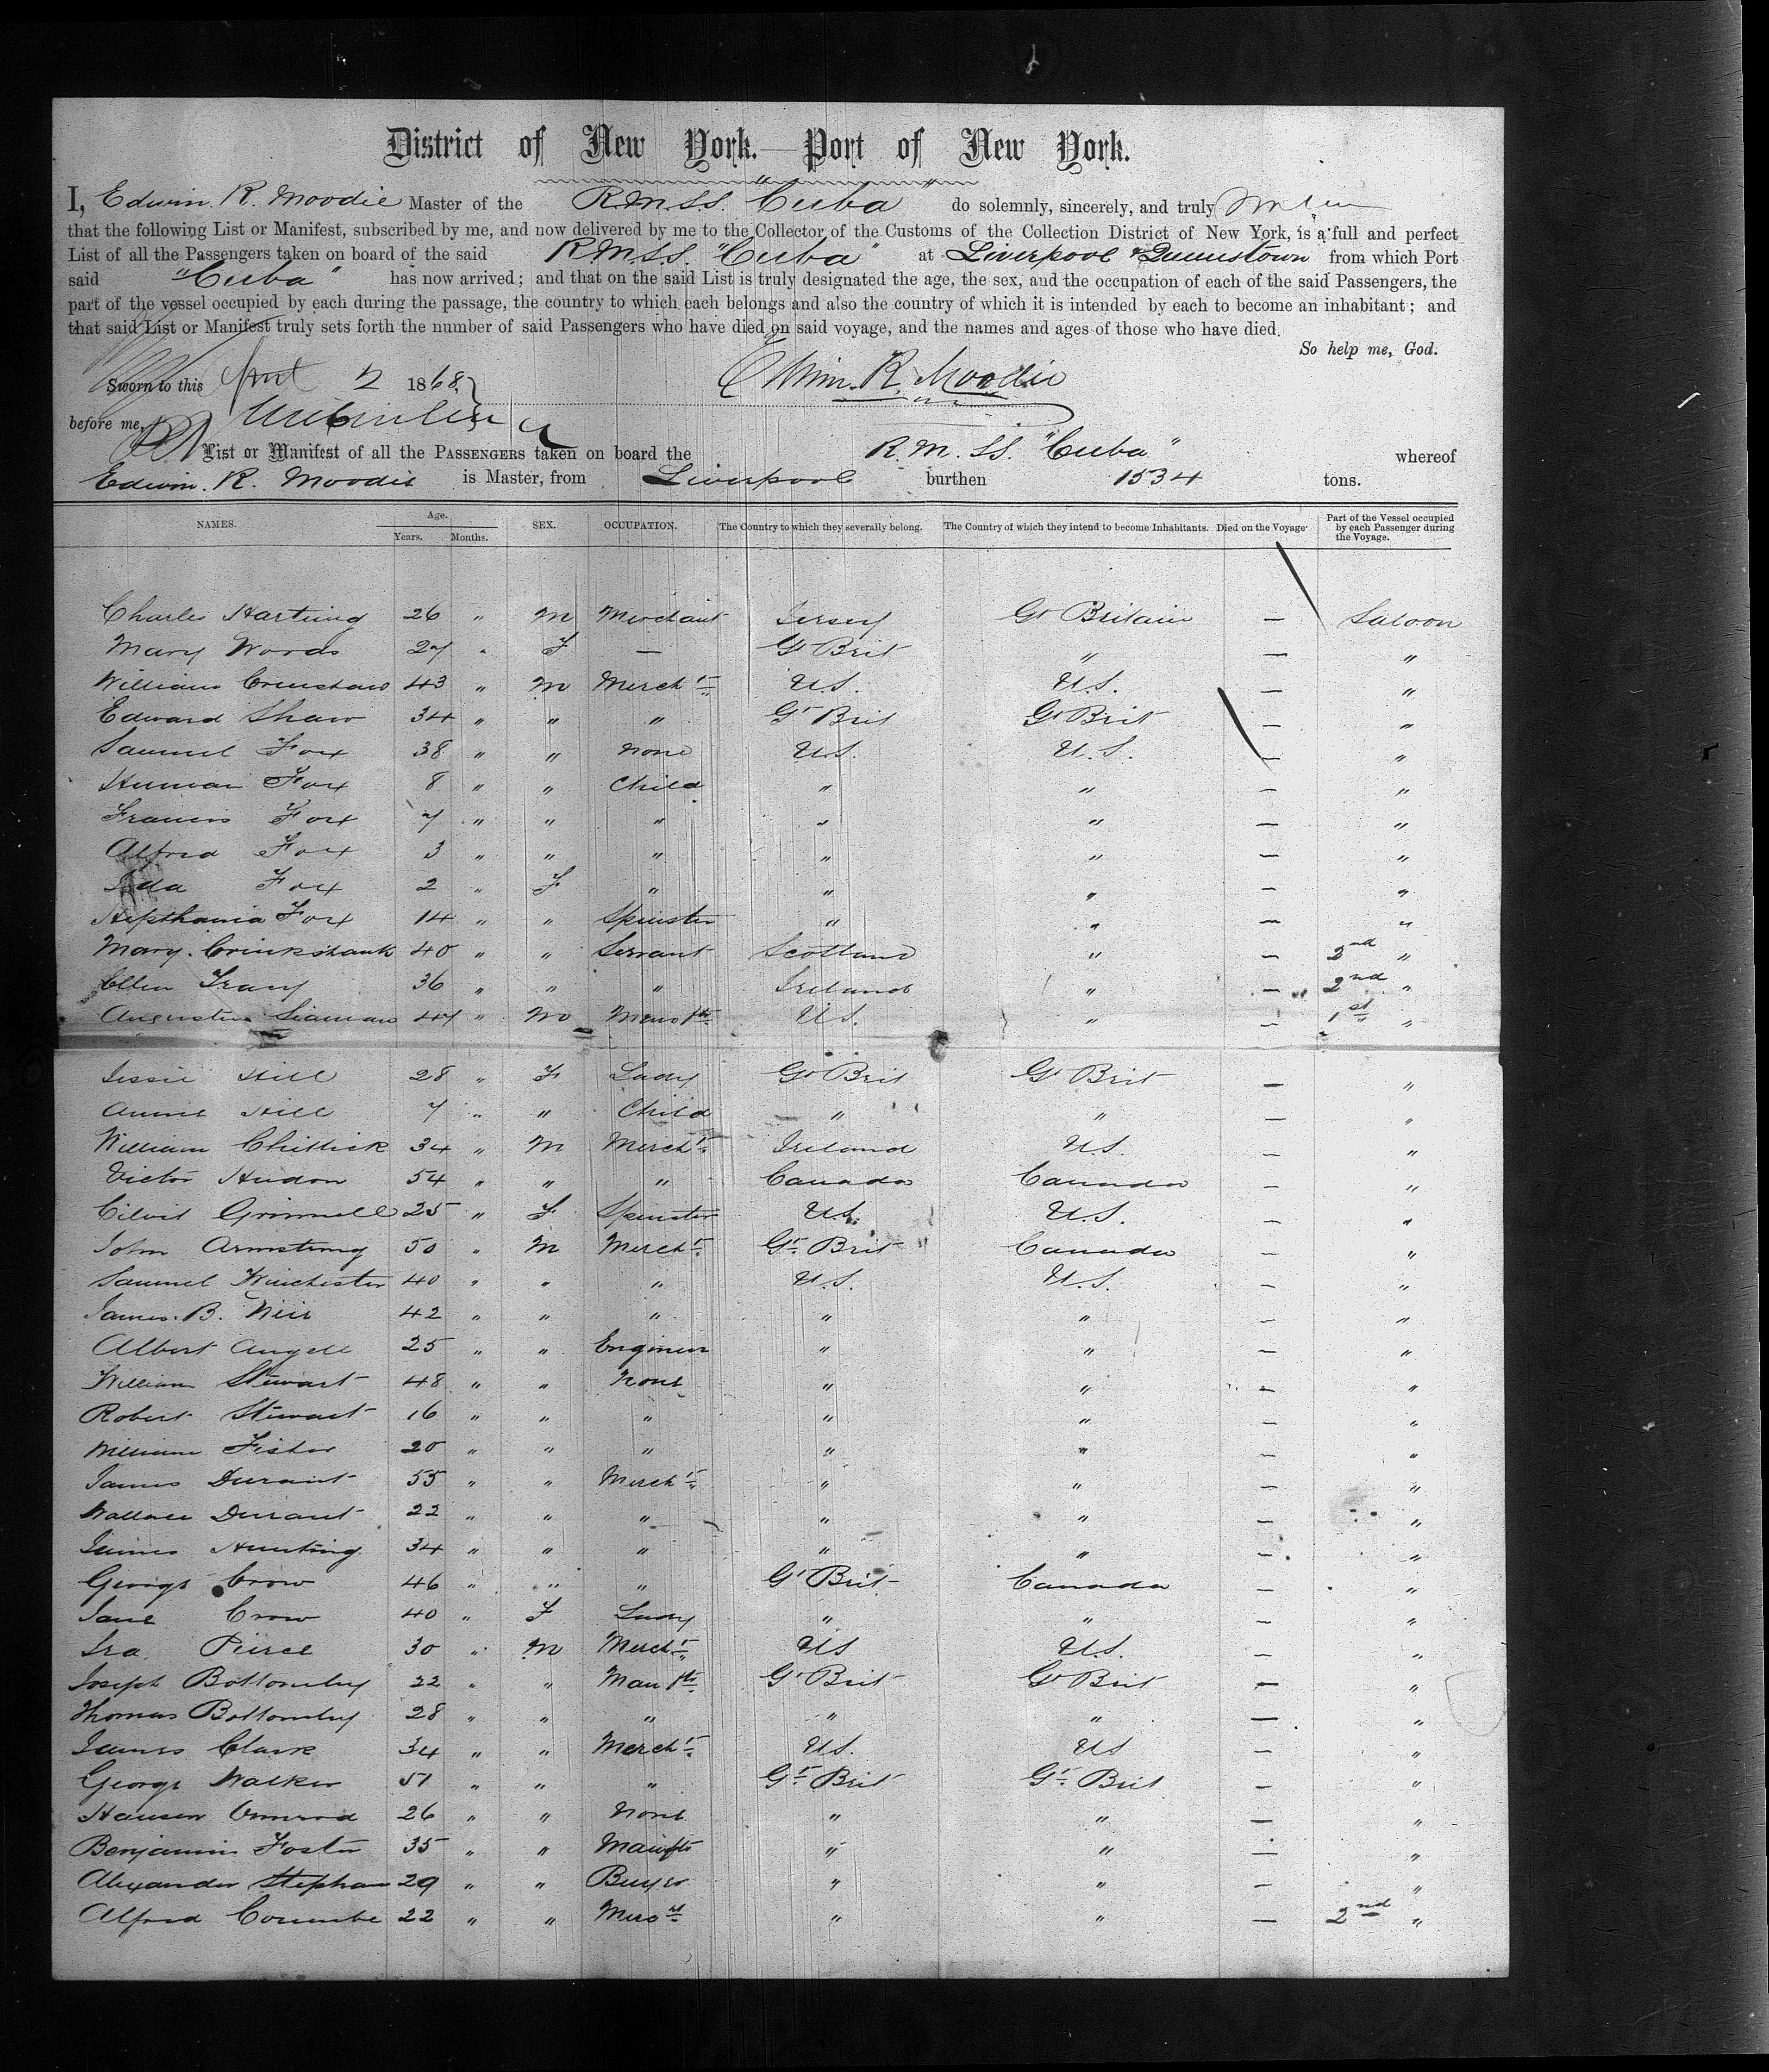 District of New York.—Port of New York.
I, Edwin. R. Moodie Master of the R.M.S.S. "Cuba" do solemnly, sincerely, and truly
that the following List or Manifest, subscribed by me, and now delivered by me to the Collector of the Customs of the Collection District of New York, is a full and perfect
List of all the Passengers taken on board of the said R.M.S.S. "Cuba" at Liverpool & Queenstown from which Port
said "Cuba" has now arrived; and that on the said List is truly designated the age, the sex, and the occupation of each of the said Passengers, the
part of the vessel occupied by each during the passage, the country to which each belongs and also the country of which it is intended by each to become an inhabitant; and
that said List or Manifest truly sets forth the number of said Passengers who have died on said voyage, and the names and ages of those who have died.
So help me, God.
Sworn to this 1868. Edwin. R. Moodie
before me,
List or Manifest of all the Passengers taken on board the R.M.SS. "Cuba" whereof
Edwin. R. Moodie is Master, from Liverpool burthen 1534 tons.
NAMES. Age. Years. Months. SEX. OCCUPATION. The Country to which they severally belong. The Country of which they intend to become Inhabitants. Died on the Voyage. Part of the Vessel occupied by each Passenger during the Voyage.
Charles Hartung 26 " M Merchant Jersey Gt Britain — Saloon
Mary Woods 27 " F — Gt Brit " — "
William Crenshaw 43 " M Mercht U.S. U.S. — "
Edward Shaw 34 " " " Gt Brit Gt Brit — "
Samuel Fox 38 " " none U.S. U.S. — "
Fox 8 " " Child " " — "
Francis Fox 7 " " " " " — "
Alfred Fox 3 " " " " " — "
Ada Fox 2 " F " " " — "
Hepthania Fox 14 " " Spinster " " — "
Mary. Crinkshank 40 " " Servant Scotland " — 2nd "
Ellen Tracy 36 " " " Ireland " — 2nd "
Augustus Seaman 47 " M U.S. " — 1st "
Jessie Hill 28 " F Lady Gt Brit Gt Brit — "
Annie Hill 7 " " Child " " — "
William Chittick 34 " M Mercht Ireland U.S. — "
Victor Hudon 54 " " " Canada Canada — "
Grinnell 25 " F Spinster U.S. U.S. — "
John Armstrong 50 " M Mercht Gt Brit Canada — "
Samuel Winchester 40 " " " U.S. U.S. — "
James. B. Weir 42 " " " " " — "
Albert Angell 25 " " Engineer " " — "
William Stewart 48 " " None " " — "
Robert Stewart 16 " " " " " — "
William Fisher 20 " " " " " — "
James Durant 55 " " Mercht " " — "
Wallace Durant 22 " " " " " — "
James Hunting 34 " " " " " — "
George Crow 46 " " " Gt Brit Canada — "
Jane Crow 40 " F Lady " " — "
Ira Pierce 30 " M Mercht US U.S. — "
Joseph Bottomley 22 " " Manftr Gt Brit Gt Brit — "
Thomas Bottomley 28 " " " " " — "
James Clark 34 " " Mercht US. US — "
George Walker 51 " " " Gt Brit Gt Brit — "
Ormrod 26 " " None " " — "
Benjamin Foster 35 " " Manftr " " — "
Alexander Stephan 29 " " Buyer " " — "
Alfred Coumbe 22 " " " " — 2nd "